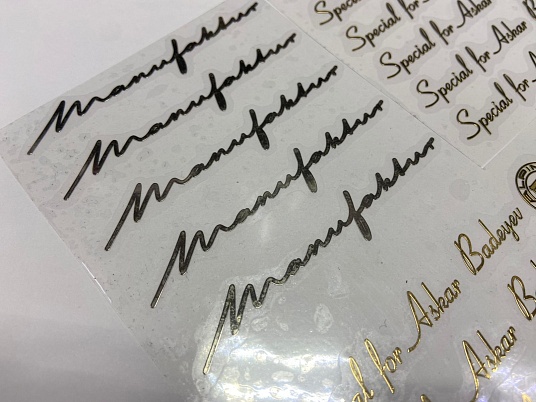 Manufaktur
Manufaktur
Manufaktur
Manufaktur
Manufaktur
Special for
Special for Askar
Special for Askar
Special for Askar B
Special for Askar
Special for Askar Badeyev
ALPIN
cial for Askar B